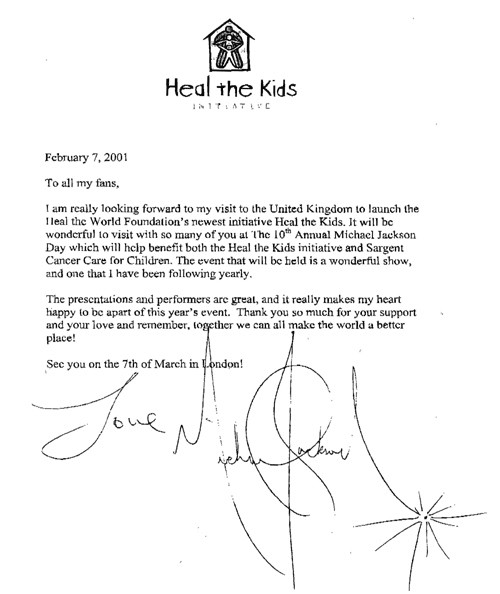 Heal the Kids
INITIATIVE
February 7, 2001
To all my fans,
I am really looking forward to my visit to the United Kingdom to launch the
Heal the World Foundation's newest initiative Heal the Kids. It will be
wonderful to visit with so many of you at The 10th Annual Michael Jackson
Day which will help benefit both the Heal the Kids initiative and Sargent
Cancer Care for Children. The event that will be held is a wonderful show,
and one that I have been following yearly.
The presentations and performers are great, and it really makes my heart
happy to be apart of this year's event. Thank you so much for your support
and your love and remember, together we can all make the world a better
place!
See you on the 7th of March in London!
Love Michael Jackson